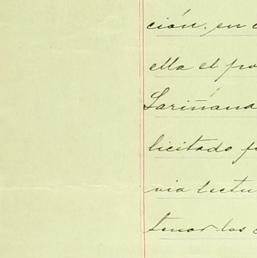 ción. en
ella el
Sariñana
licitado
via lectu
tenor los